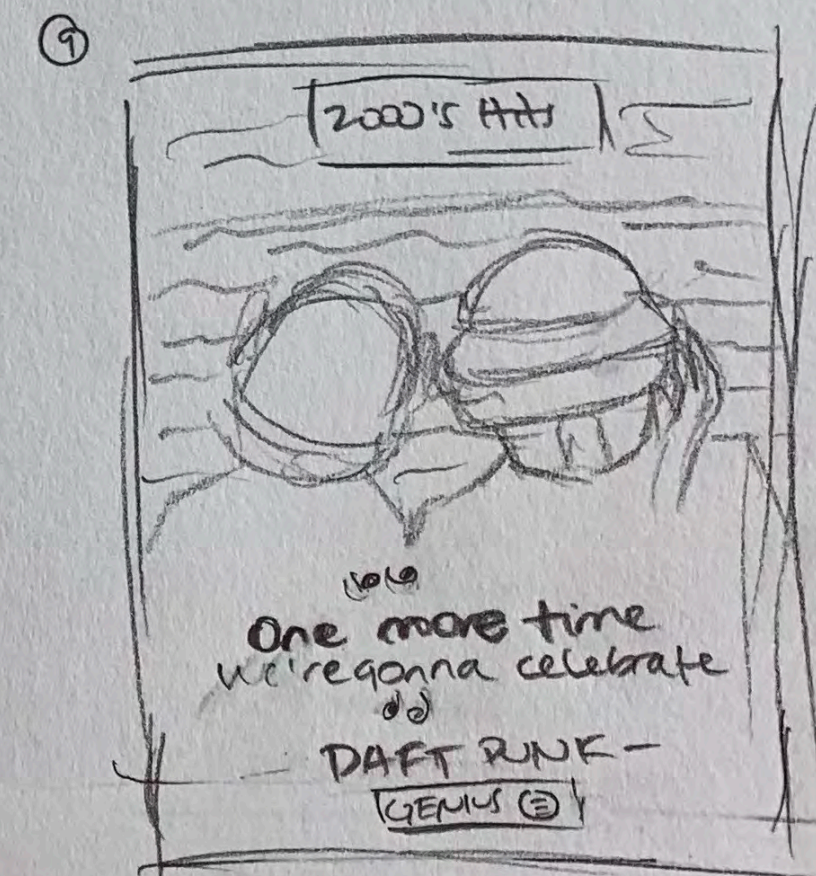 9
2000's Hits
One more time
we're gonna celebrate
DAFT PUNK –
GENIUS